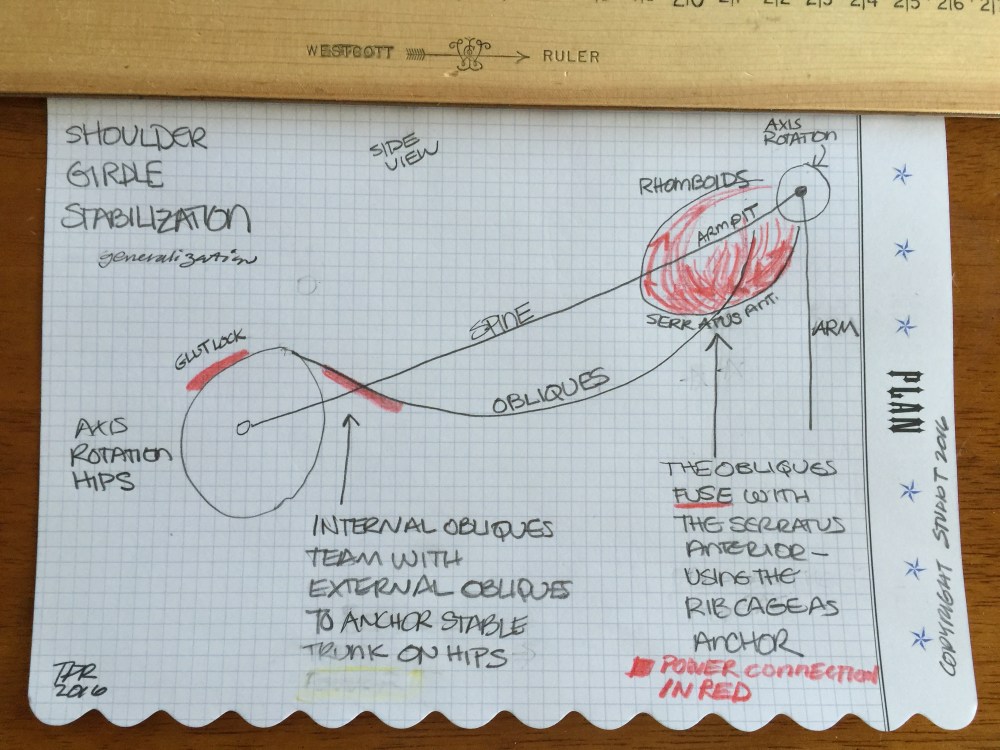 210 211 212 213 214 215 216
WESTCOTT RULER
SHOULDER
GIRDLE
STABILIZATION
generalization
SIDE
VIEW
AXIS
ROTATION
RHOMBOIDS
ARMPIT
SERRATUS ANT.
ARM
SPINE
OBLIQUES
GLUT LOCK
AXIS
ROTATION
HIPS
INTERNAL OBLIQUES
TEAM WITH
EXTERNAL OBLIQUES
TO ANCHOR STABLE
TRUNK ON HIPS
THE OBLIQUES
FUSE WITH
THE SERRATUS
ANTERIOR—
USING THE
RIB CAGE AS
ANCHOR
POWER CONNECTION
IN RED
2016
PLAN
COPYRIGHT 2016